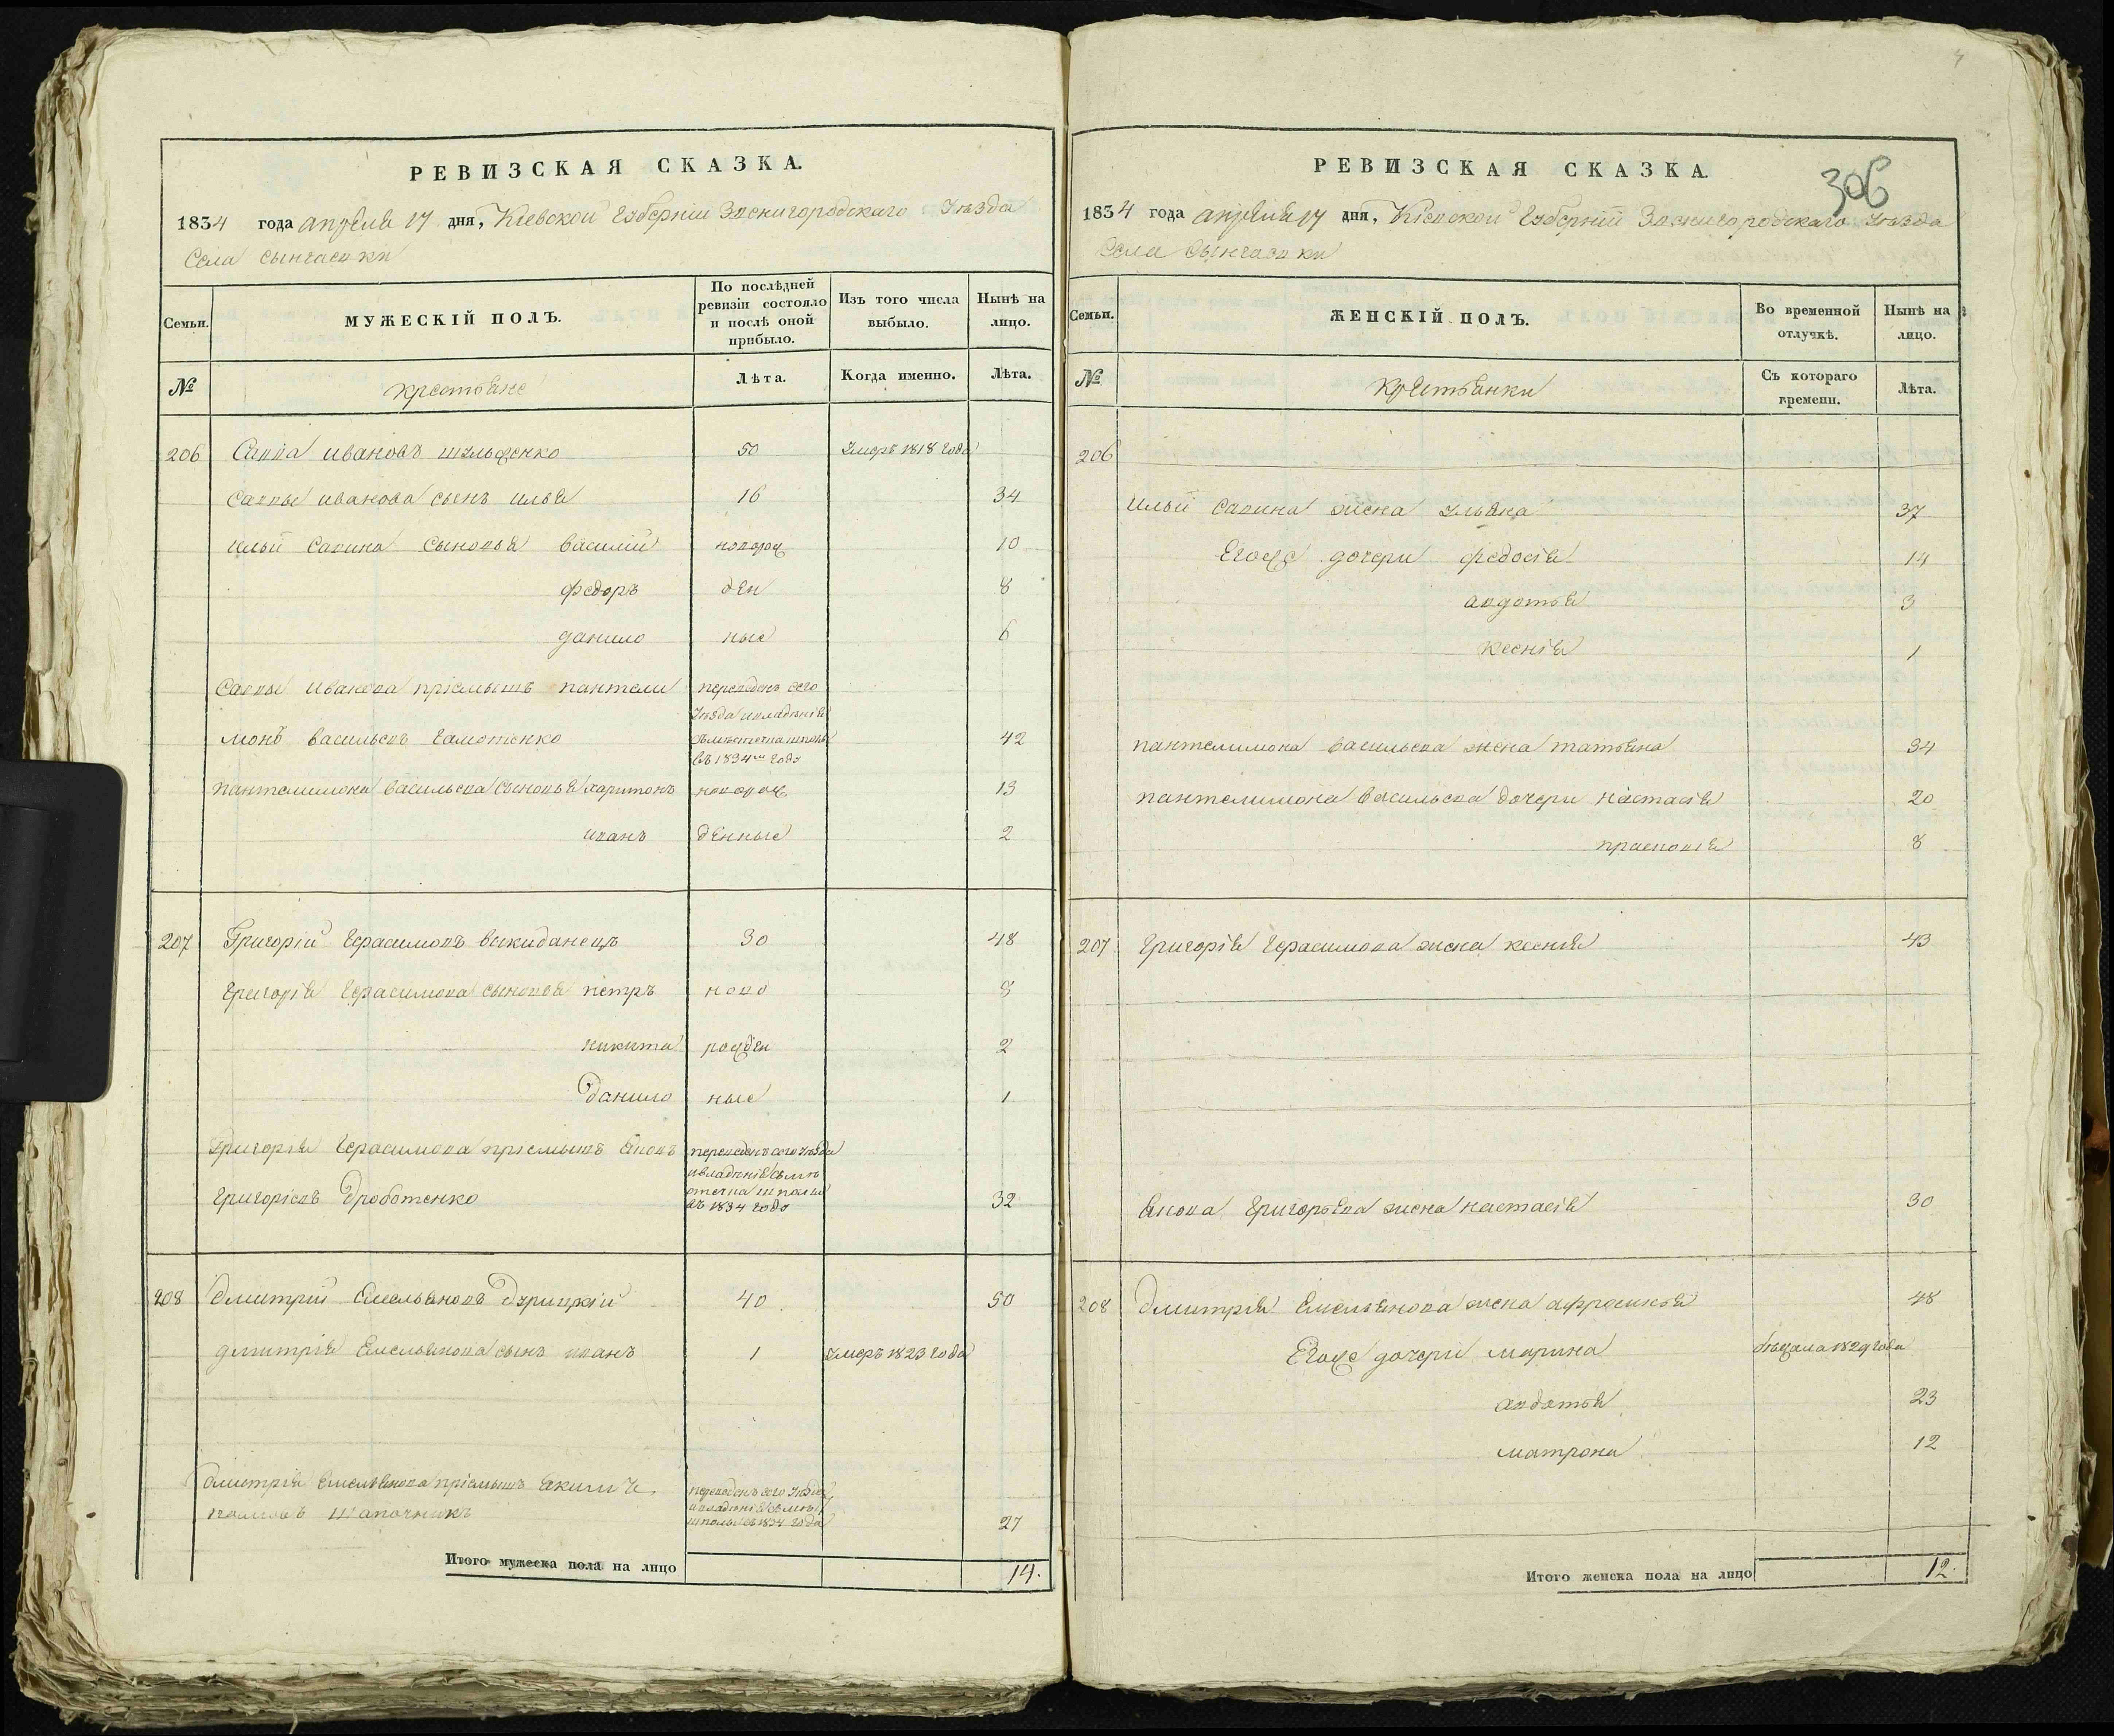 РЕВИЗСКАЯ СКАЗКА.
1834 года апреля 17 дня, Кіевской Губерніи Звенигородскаго Уѣзда
Села Сынгаевки
Семьи.
МУЖЕСКІЙ ПОЛЪ.
По послѣдней ревизіи состояло и послѣ оной прибыло.
Изъ того числа выбыло.
Нынѣ на лицо.
№
Крестьяне
Лѣта.
Когда именно.
Лѣта.
206 Савва Ивановъ 50 Умеръ 1818 года
Саввы Иванова сынъ Илья 16 34
Ильи Савина сыновья Василій новорож 10
Федоръ ден 8
Данило ные 6
Саввы Иванова пріемышъ Пантели переведенъ сего
Уѣзда владѣнія
монъ Васильевъ Гамотенко 42
въ 1834 году
Пантелимона Васильева сыновья Харитонъ новорож 13
Иванъ денные 2
207 Григорій Герасимовъ Выкиданецъ 30 48
Григорія Герасимова сыновья Петръ ново 8
Никита рожден 2
Данило ные 1
Григорія Герасимова пріемышъ Яковъ переведенъ сего Уѣзда
владѣнія
Григоріевъ Дроботенко 32
въ 1834 году
208 Дмитрій Емельяновъ Дзрицкій 40 50
Дмитрія Емельянова сынъ Иванъ 1 Умеръ 1823 года
Дмитрія Емельянова пріемышъ Якимъ переведенъ сего Уѣзда
владѣнія
Шапочникъ въ 1834 года 27
Итого мужеска пола на лицо 14.
306
РЕВИЗСКАЯ СКАЗКА.
1834 года апреля 17 дня, Кіевской Губерніи Звенигородскаго Уѣзда
Села Сынгаевки
Семьи.
ЖЕНСКІЙ ПОЛЪ.
Во временной отлучкѣ.
Нынѣ на лицо.
№
Крестьянки
Съ котораго времени.
Лѣта.
206
Ильи Савина жена Ульяна 37
Егоже дочери Федосія 14
Авдотья 3
Ксенія 1
Пантелимона Васильева жена Татьяна 34
Пантелимона Васильева дочери Настасія 20
Прасковія 8
207 Григорія Герасимова жена Ксенія 43
Якова Григорьева жена Настасія 30
208 Дмитрія Емельянова жена Афросинья 48
Егоже дочери Марина бѣжала 1829 года
Авдотья 23
Матрона 12
Итого женска пола на лицо 12.